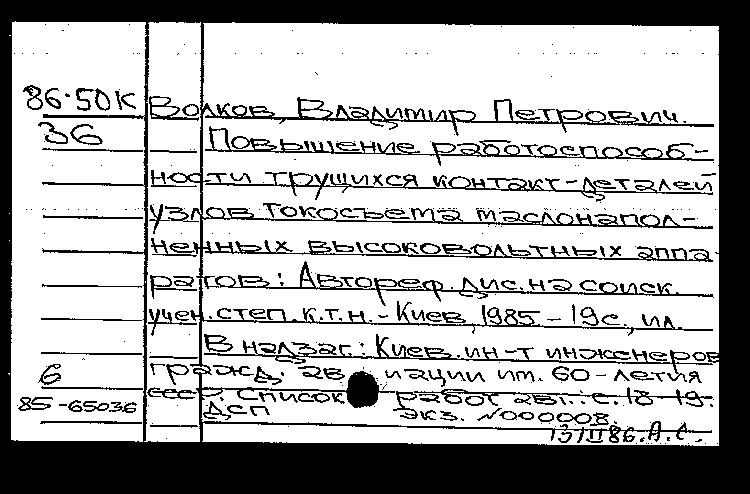 86-50К Волков, Владимир Петрович.
36 Повышение работоспособ-
ности трущихся контакт-деталей
узлов токосъема маслонапол-
ненных высоковольтных аппа-
ратов: Автореф. дис. на соиск.
учен. степ. к.т.н. - Киев, 1985 - 19с., ил.
В надзаг.: Киев. ин-т инженеров
6 гражд. авиации им. 60-летия
85-65036 СССР. Список работ авт.: с. 18-19.
ДСП экз. №000008.
13/II 86. А.С.